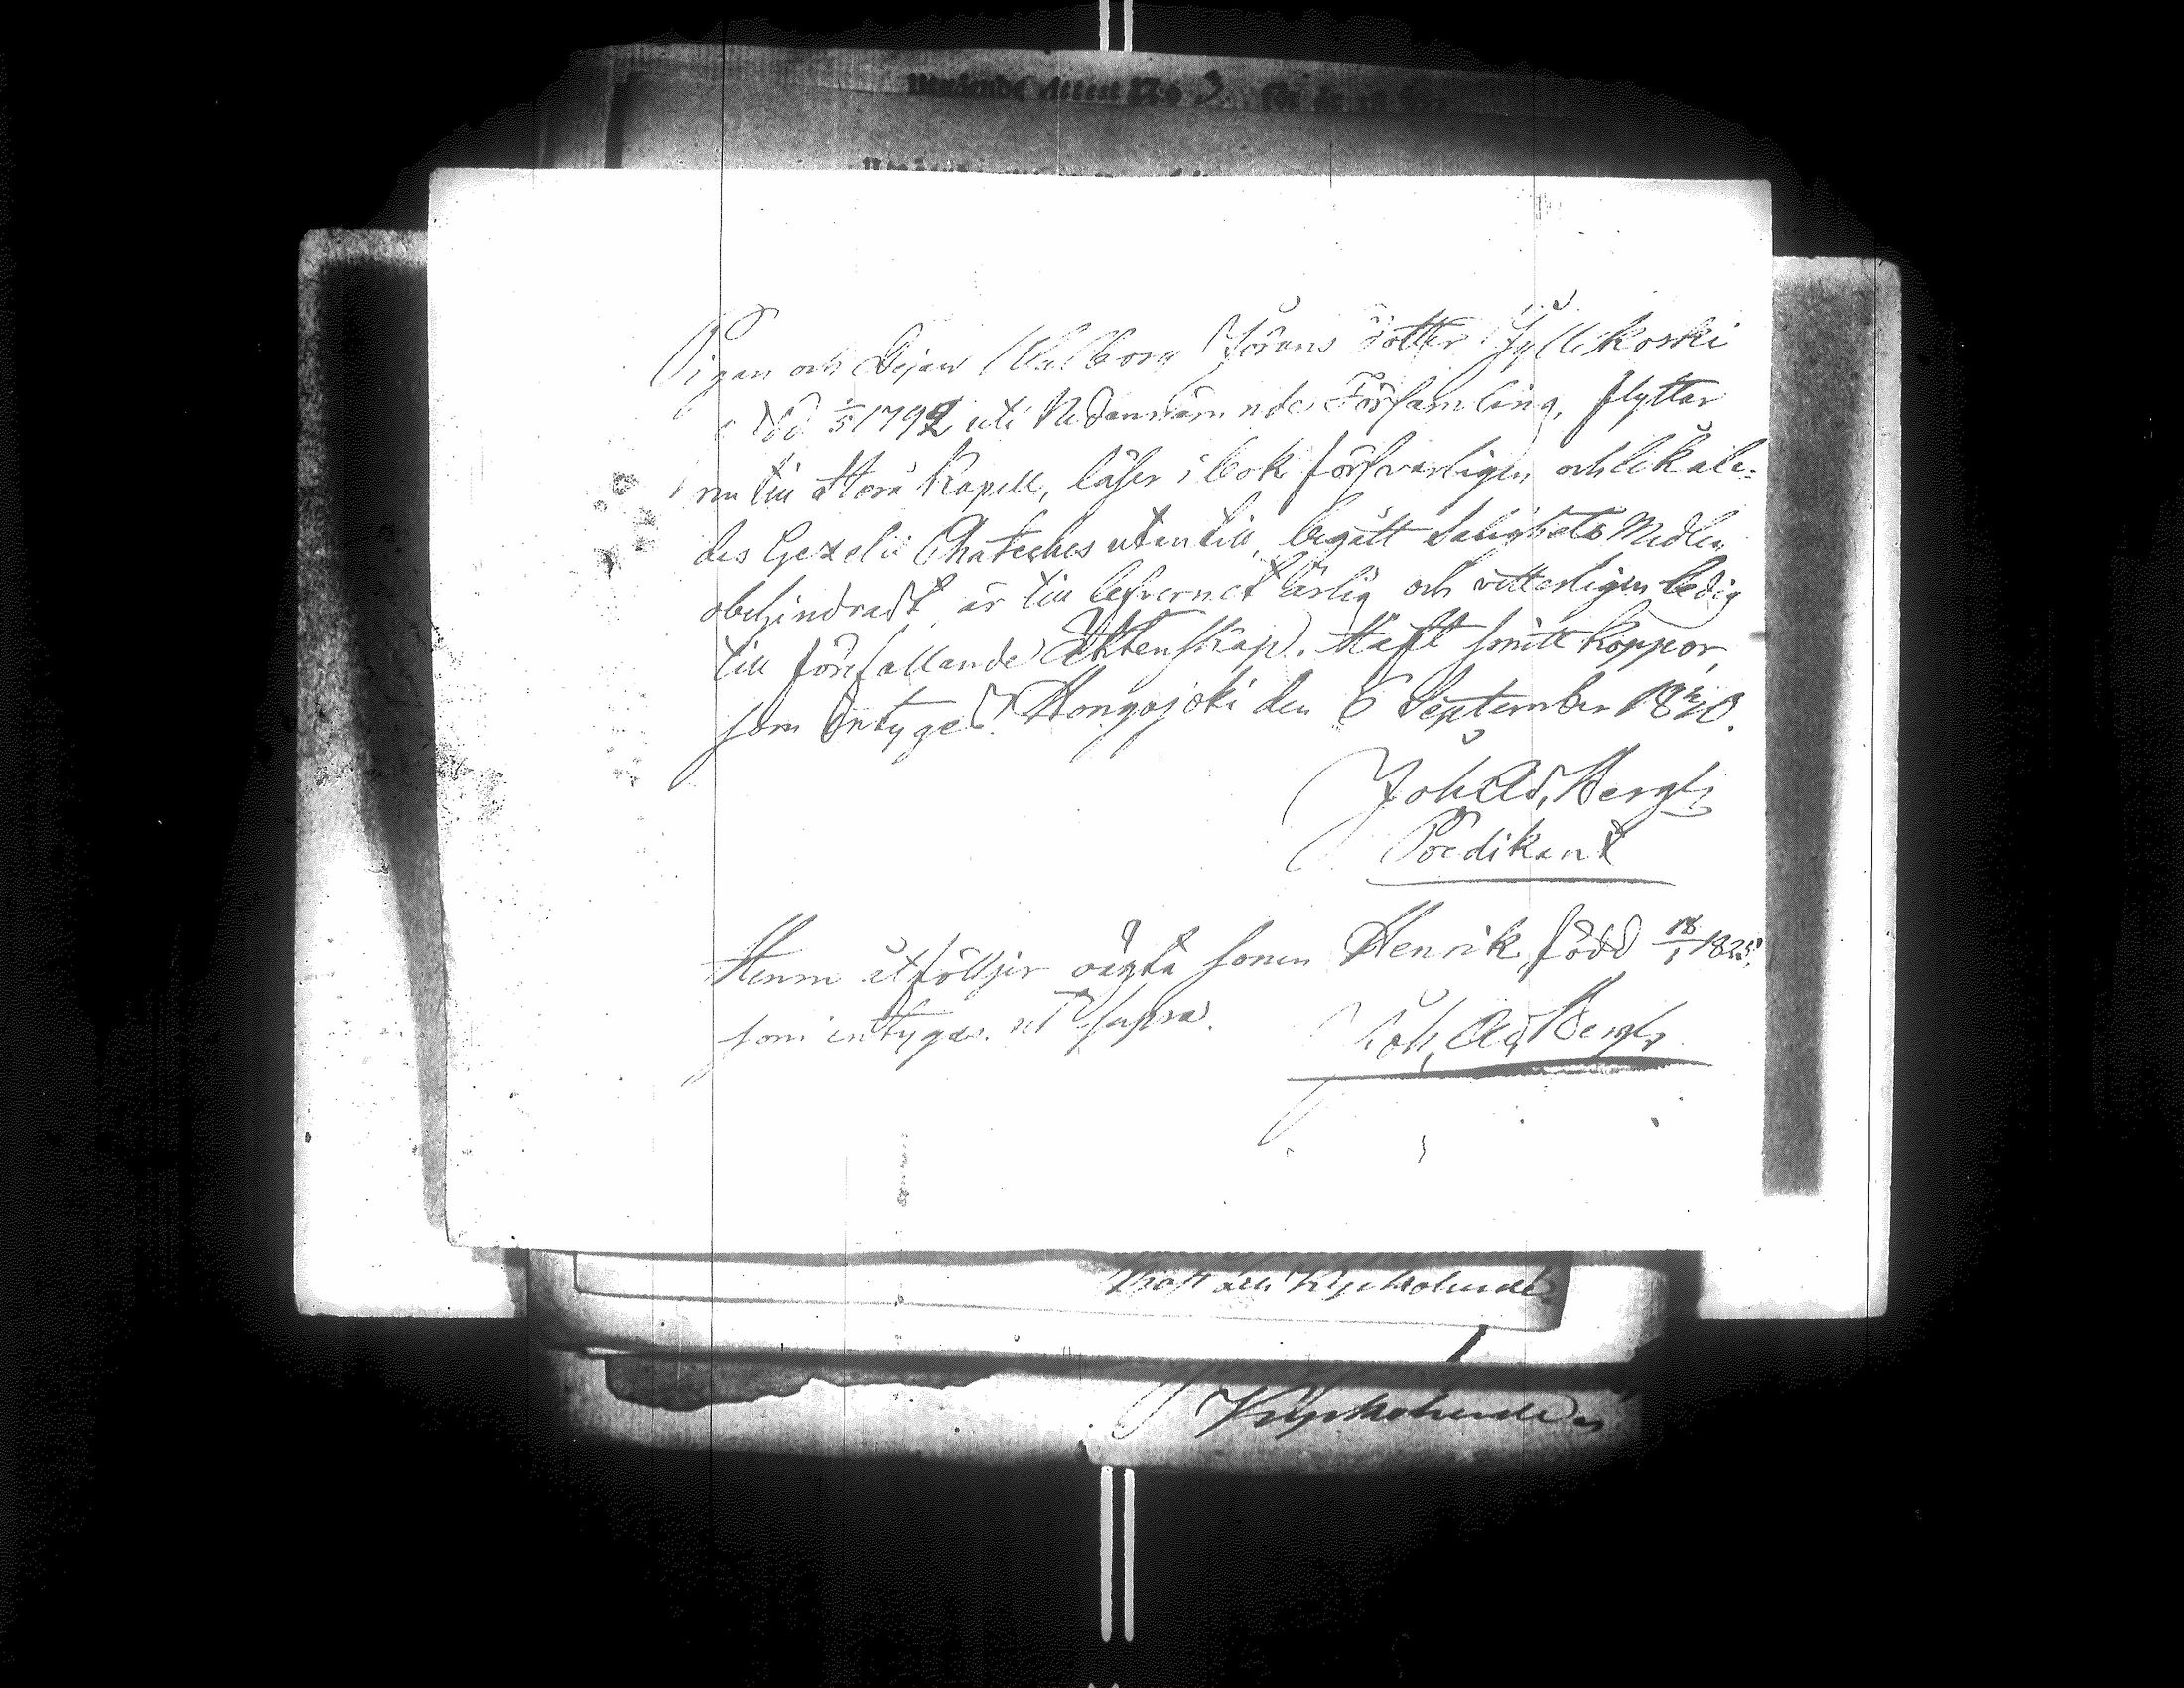 Utgående Attest No 3
Pigan och Dejan Walborg Jörans dotter Jyllikoski
född 1/5 1792 uti Nedannämnde Församling, flyttar
nu till Herå Kapell, läser i bok försvarligen och likale-
des Gezelii Chateches utantill, begått Salighets Medlen
obehindradt, är till lefvernet ärlig och vetterligen ledig
till förefallande Ägtenskap. Haft smitt koppor,
som intygar. Hongojoki den 6 September 1840.
Joh. Ad. Bergh
Predikant
Henne åtföljer oägta sonen Henrik född 18/1 1825.
som intygas ut supra.
Joh. Ad. Bergh